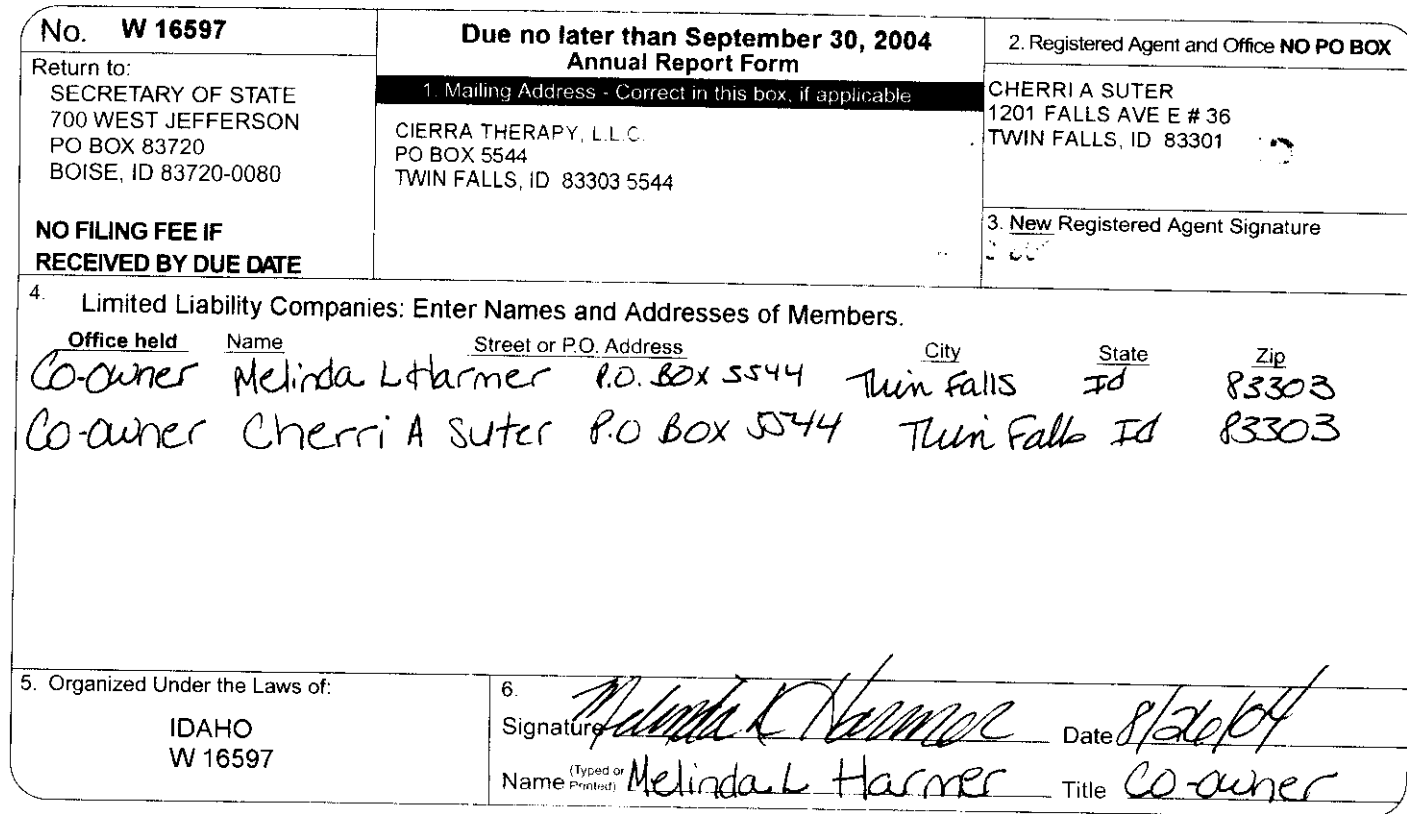 No. W 16597
Return to:
SECRETARY OF STATE
700 WEST JEFFERSON
PO BOX 83720
BOISE, ID 83720-0080
NO FILING FEE IF
RECEIVED BY DUE DATE
Due no later than September 30, 2004
Annual Report Form
1. Mailing Address - Correct in this box, if applicable
CIERRA THERAPY, L.L.C.
PO BOX 5544
TWIN FALLS, ID 83303 5544
2. Registered Agent and Office NO PO BOX
CHERRI A SUTER
1201 FALLS AVE E # 36
TWIN FALLS, ID 83301
3. New Registered Agent Signature
4. Limited Liability Companies: Enter Names and Addresses of Members.
Office held Name Street or P.O. Address City State Zip
Co-owner Melinda L Harmer P.O. BOX 5544 Twin Falls Id 83303
Co-owner Cherri A Suter P.O BOX 5544 Twin Falls Id 83303
5. Organized Under the Laws of:
IDAHO
W 16597
6.
Signature Melinda L Harmer Date 8/26/04
Name (Typed or Printed) Melinda L Harmer Title Co-owner